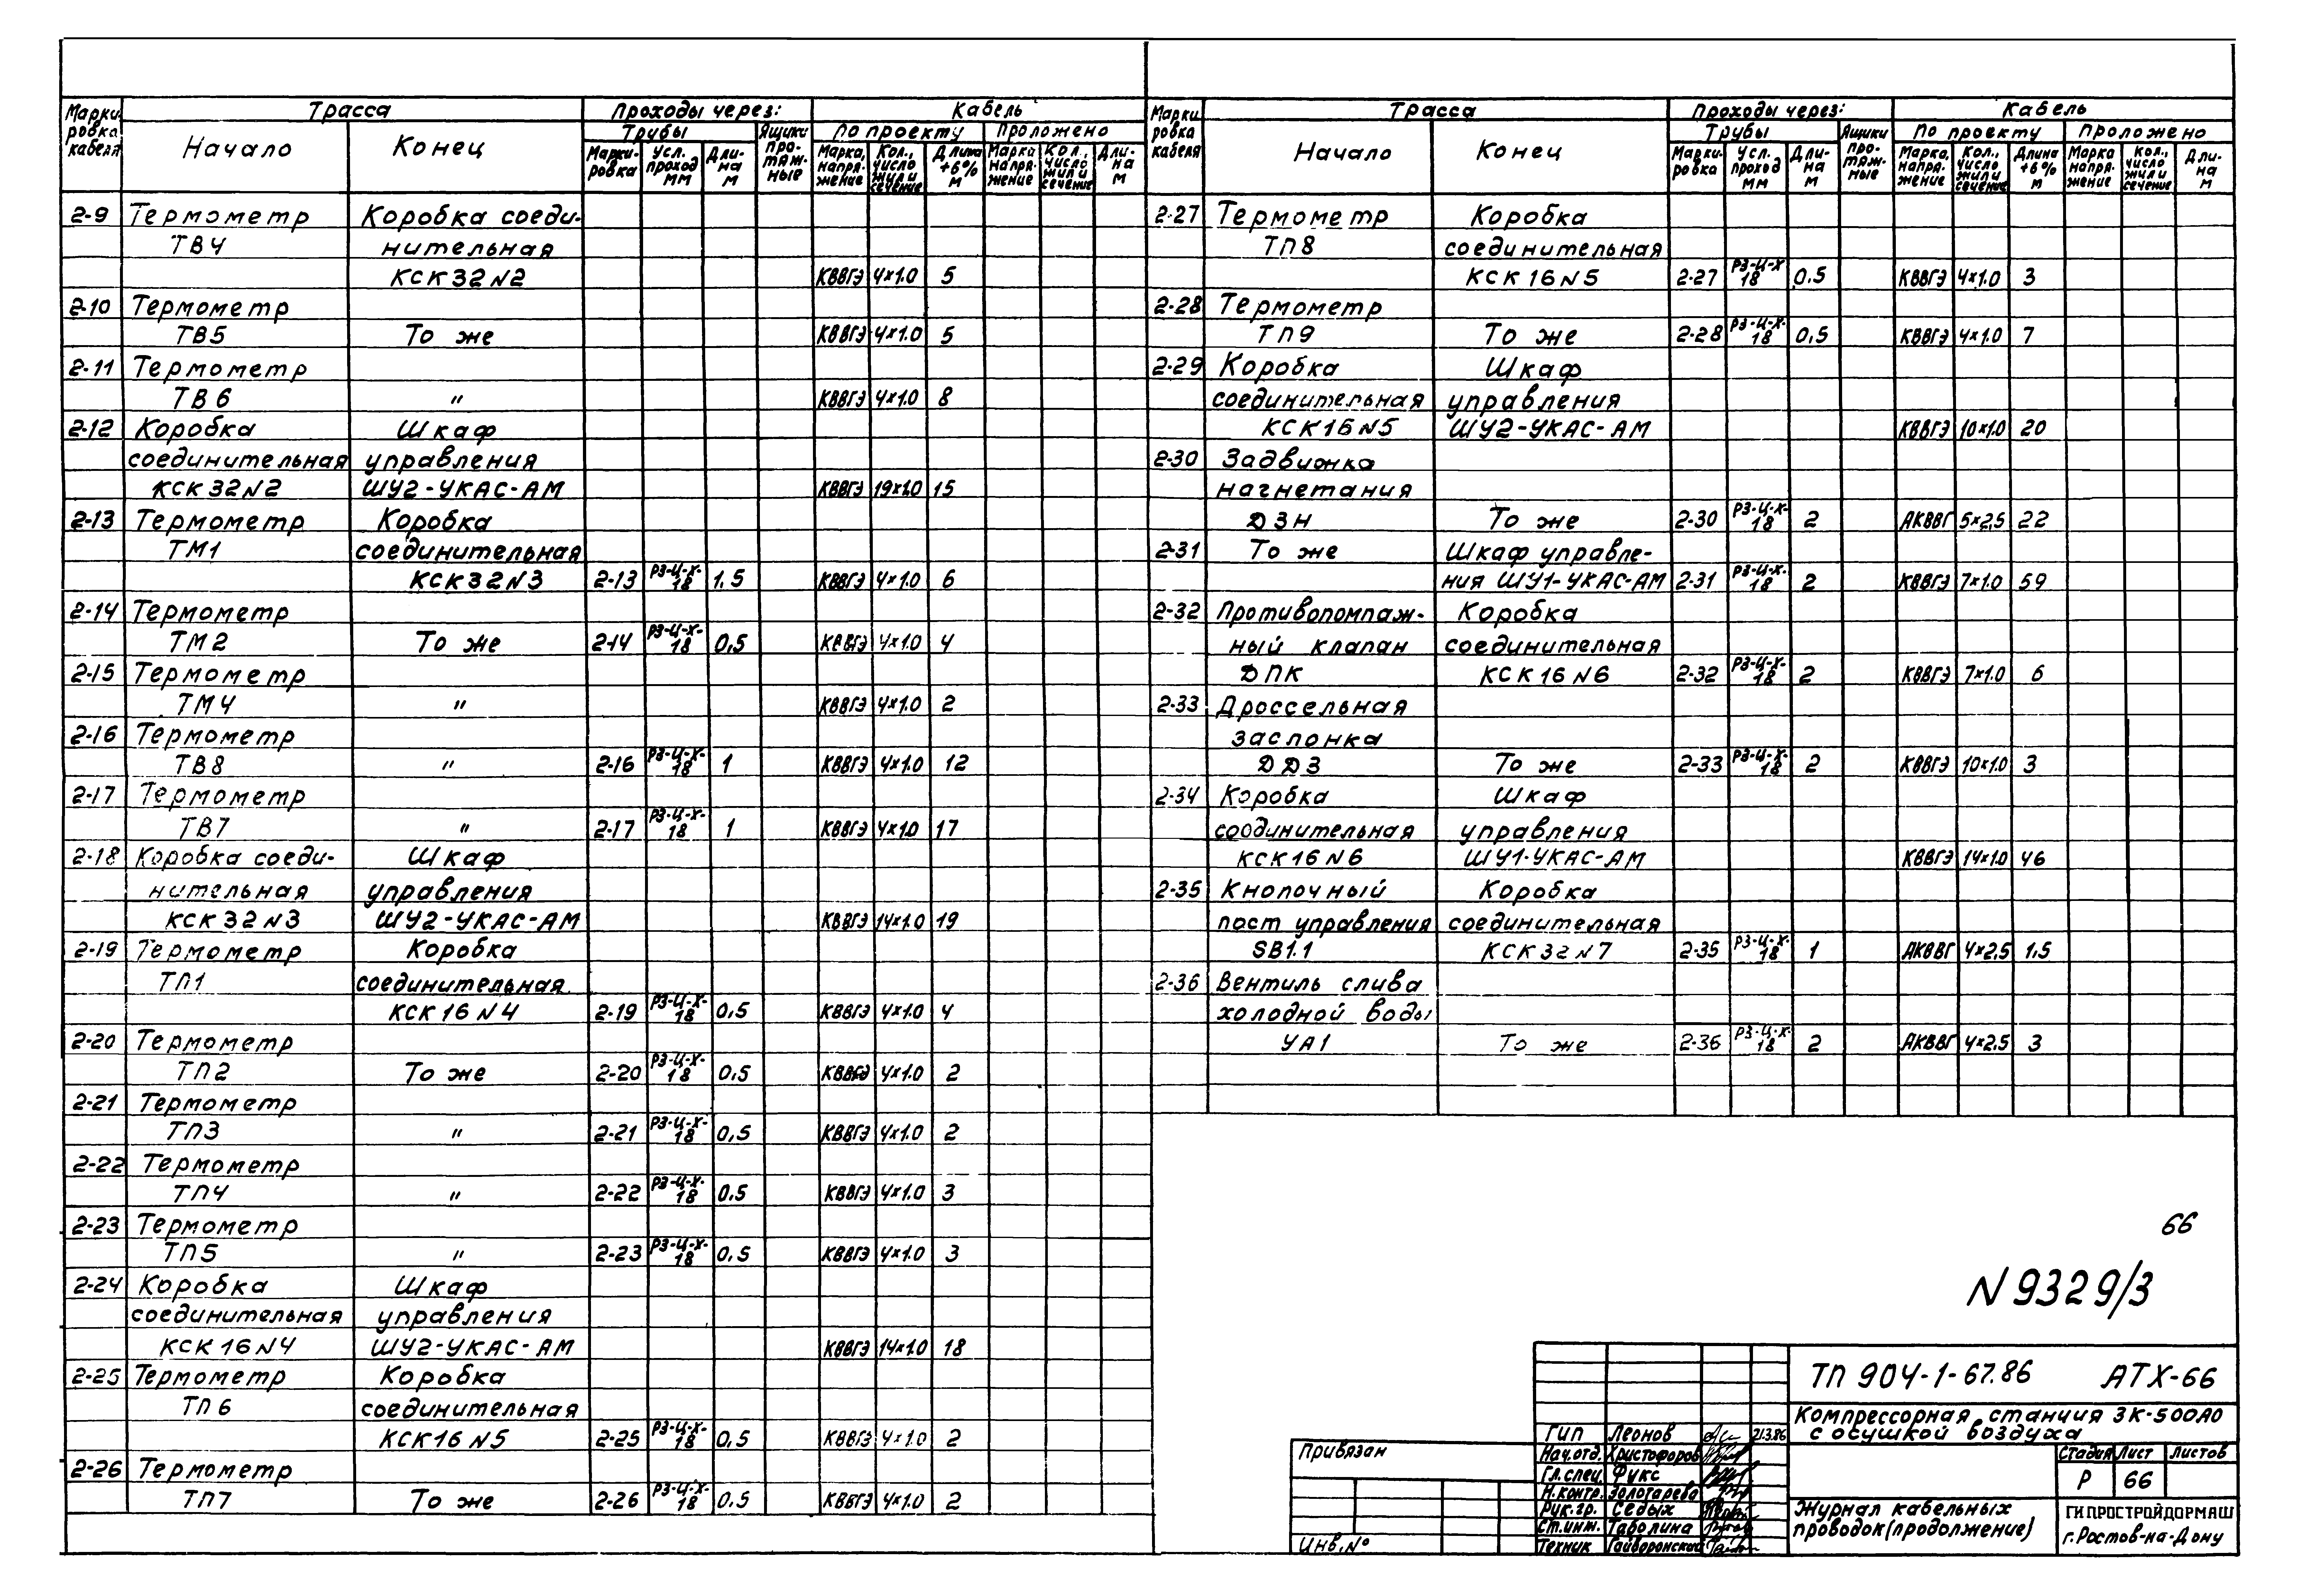 Марки-ровка кабеля | Трасса | Проходы через: | Кабель
Начало | Конец | Трубы | Ящики про-тяж-ные | По проекту | Проложено
Марки-ровка | Усл. проход мм | Дли-на м | Марка, напря-жение | Кол., число жил и сечение | Длина +6% м | Марка напря-жение | Кол., число жил и сечение | Дли-на м
2-9 Термометр Коробка соеди-
ТВ4 нительная
КСК32N2 КВВГЭ 4×1.0 5
2-10 Термометр
ТВ5 То же КВВГЭ 4×1.0 5
2-11 Термометр
ТВ6 " КВВГЭ 4×1.0 8
2-12 Коробка Шкаф
соединительная управления
КСК32N2 ШУ2-УКАС-АМ КВВГЭ 19×1.0 15
2-13 Термометр Коробка
ТМ1 соединительная
КСК32N3 2-13 РЗ-Ц-Х-18 1.5 КВВГЭ 4×1.0 6
2-14 Термометр
ТМ2 То же 2-14 РЗ-Ц-Х-18 0,5 КВВГЭ 4×1.0 4
2-15 Термометр
ТМ4 " КВВГЭ 4×1.0 2
2-16 Термометр
ТВ8 " 2-16 РЗ-Ц-Х-18 1 КВВГЭ 4×1.0 12
2-17 Термометр
ТВ7 " 2-17 РЗ-Ц-Х-18 1 КВВГЭ 4×1.0 17
2-18 Коробка соеди- Шкаф
нительная управления
КСК32N3 ШУ2-УКАС-АМ КВВГЭ 14×1.0 19
2-19 Термометр Коробка
ТП1 соединительная
КСК16N4 2-19 РЗ-Ц-Х-18 0,5 КВВГЭ 4×1.0 4
2-20 Термометр
ТП2 То же 2-20 РЗ-Ц-Х-18 0,5 КВВГЭ 4×1.0 2
2-21 Термометр
ТП3 " 2-21 РЗ-Ц-Х-18 0,5 КВВГЭ 4×1.0 2
2-22 Термометр
ТП4 " 2-22 РЗ-Ц-Х-18 0.5 КВВГЭ 4×1.0 3
2-23 Термометр
ТП5 " 2-23 РЗ-Ц-Х-18 0.5 КВВГЭ 4×1.0 3
2-24 Коробка Шкаф
соединительная управления
КСК16N4 ШУ2-УКАС-АМ КВВГЭ 14×1.0 18
2-25 Термометр Коробка
ТП6 соединительная
КСК16N5 2-25 РЗ-Ц-Х-18 0,5 КВВГЭ 4×1.0 2
2-26 Термометр
ТП7 То же 2-26 РЗ-Ц-Х-18 0.5 КВВГЭ 4×1.0 2
Марки ровка кабеля | Трасса | Проходы через: | Кабель
Начало | Конец | Трубы | Ящики про-тяж-ные | По проекту | Проложено
Марки-ровка | Усл. проход мм | Дли-на м | Марка, напря-жение | Кол., число жил и сечение | Длина +6% м | Марка напря-жение | Кол., число жил и сечение | Дли-на м
2-27 Термометр Коробка
ТП8 соединительная
КСК16N5 2-27 РЗ-Ц-Х 18 0.5 КВВГЭ 4×1.0 3
2-28 Термометр
ТП9 То же 2-28 РЗ-Ц-Х-18 0,5 КВВГЭ 4×1.0 7
2-29 Коробка Шкаф
соединительная управления
КСК16N5 ШУ2-УКАС-АМ КВВГЭ 10×1.0 20
2-30 Задвижка
нагнетания
ДЗН То же 2-30 РЗ-Ц-Х-18 2 АКВВГ 5×2,5 22
2-31 То же Шкаф управле-
ния ШУ1-УКАС-АМ 2-31 РЗ-Ц-Х-18 2 КВВГЭ 7×1.0 59
2-32 Противопомпаж- Коробка
ный клапан соединительная
ДПК КСК16N6 2-32 РЗ-Ц-Х-18 2 КВВГЭ 7×1.0 6
2-33 Дроссельная
заслонка
ДДЗ То же 2-33 РЗ-Ц-Х-18 2 КВВГЭ 10×1.0 3
2-34 Коробка Шкаф
соединительная управления
КСК16N6 ШУ1-УКАС-АМ КВВГЭ 14×1.0 46
2-35 Кнопочный Коробка
пост управления соединительная
SB1.1 КСК32N7 2-35 РЗ-Ц-Х-18 1 АКВВГ 4×2,5 1,5
2-36 Вентиль слива
холодной воды
УА1 То же 2-36 РЗ-Ц-Х-18 2 АКВВГ 4×2.5 3
66
N9329/3
ТП 904-1-67.86 АТХ-66
Компрессорная станция 3К-500АО
с осушкой воздуха
Стадия Лист Листов
Р 66
Журнал кабельных
проводок (продолжение)
ГИПРОСТРОЙДОРМАШ
г.Ростов-на-Дону
ГИП Леонов 21.3.86
Нач.отд. Христофоров
Гл.спец. Фукс
Н.контр. Золотарева
Рук.гр. Седых
Ст.инж. Таболина
Техник Гайворонский
Привязан
Инв.№